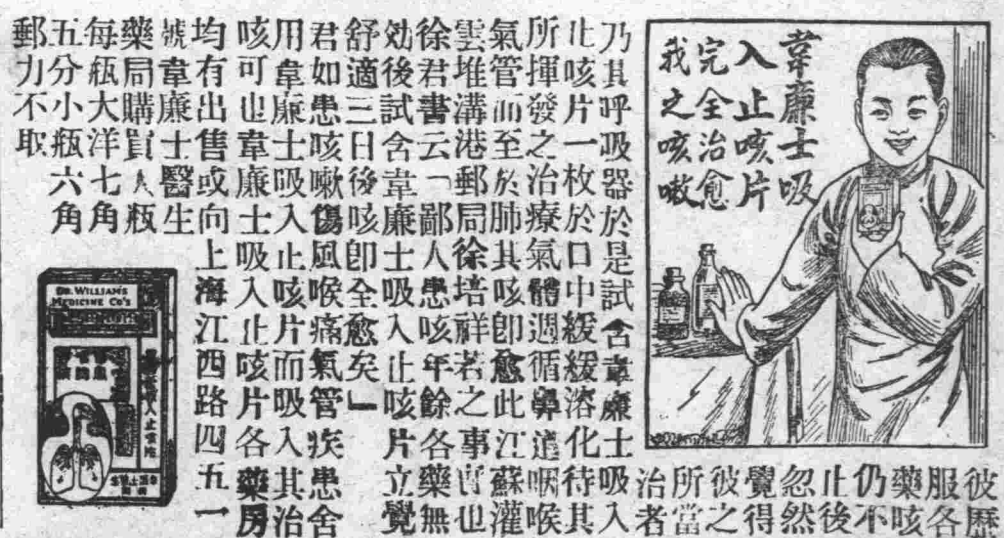 韋廉士吸
入止咳片
完全治愈
我之咳嗽
彼歷
服各
藥咳
仍不
止後
忽然
覺得
彼之
所當
治者
乃其呼吸器於是試含韋廉士吸入
止咳片一枚於口中緩緩溶化待其
所揮發之治療氣體週循鼻道咽喉
氣管而至於肺其咳卽愈此江蘇灌
雲堆溝港郵局徐培祥君之事實也
徐君書云「鄙人患咳年餘各藥無
効後試含韋廉士吸入止咳片立覺
舒適三日後咳卽全愈矣」
君如患咳嗽傷風喉痛氣管疾患舍
用韋廉士吸入止咳片而吸入其治
咳可也韋廉士吸入止咳片各藥房
均有出售或向上海江西路四五一
號韋廉士醫生
藥局購買大瓶
每瓶大洋七角
五分小瓶六角
郵力不取
DR. WILLIAMS
MEDICINE CO'S